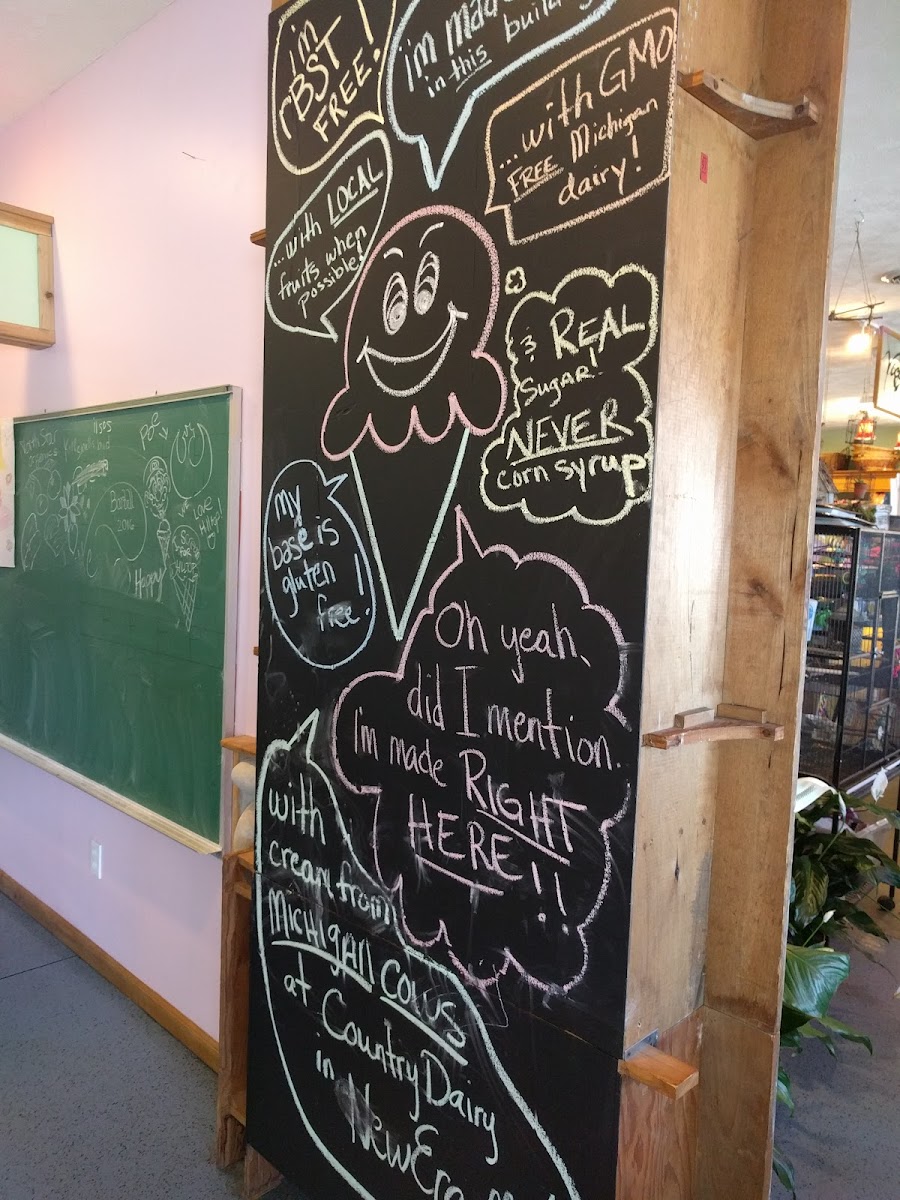 i'm
rBST
FREE!
i'm made
in this building
...with GMO
FREE Michigan
dairy!
...with LOCAL
fruits when
possible!
& REAL
Sugar!
NEVER
corn syrup
my
base is
gluten
free!
Oh yeah,
did I mention.
I'm made RIGHT
HERE!!
with
cream from
MICHIGAN COWS
at Country Dairy
in
New Era
Happy
2016